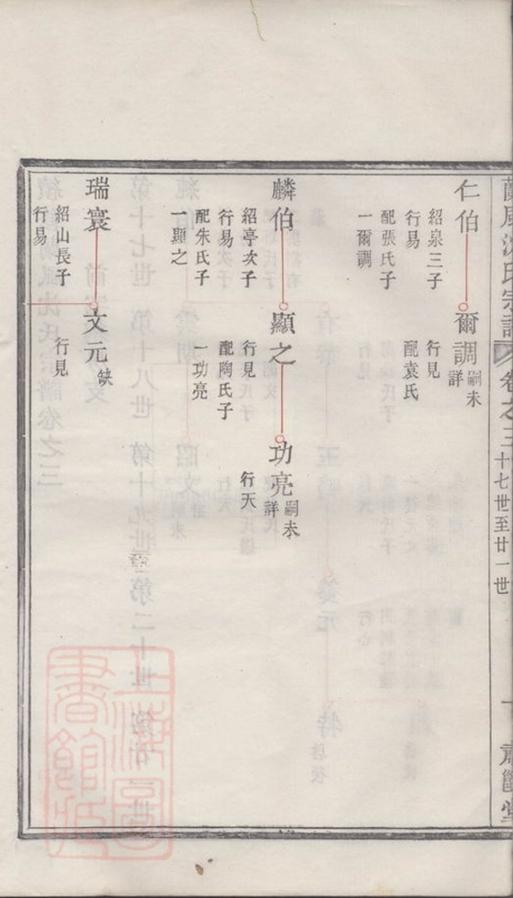 沈氏宗譜 卷之三 十七世至廿一世
仁伯
紹泉三子
行易
配張氏子
一爾調
爾調
嗣未
詳
行見
配袁氏
麟伯
紹亭次子
行易
配朱氏子
一顯之
顯之
行見
配陶氏子
一功亮
功亮
嗣未
詳
行天
瑞寰
紹山長子
行易
文元
缺
行見